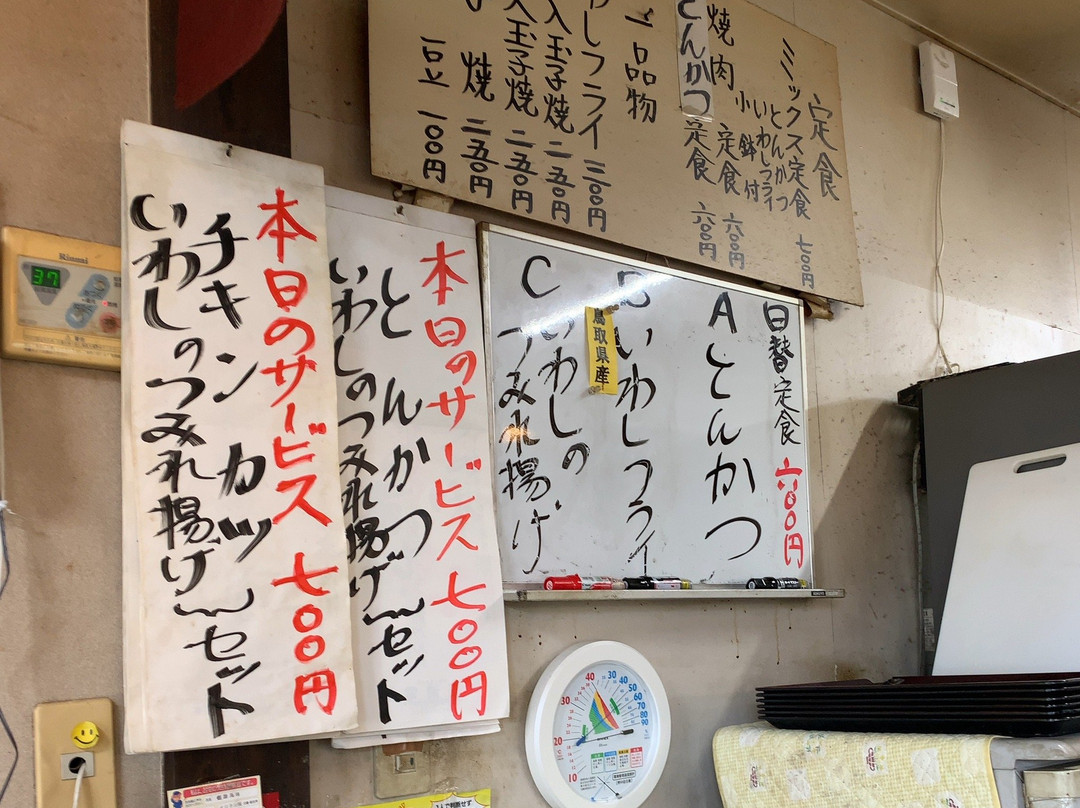 定食
ミックス定食 七〇〇円
とんかつ
いわしフライ
小鉢付
焼肉定食 六〇〇円
とんかつ定食 六〇〇円
一品物
わしフライ 三〇〇円
入玉子焼 二五〇円
入玉子焼 二五〇円
焼 二五〇円
一〇〇円
日替定食 六〇〇円
A とんかつ
B いわしフライ
鳥取県産
C いわしの
つみれ揚げ
本日のサービス 七〇〇円
とんかつ
いわしのつみれ揚げ
セット
本日のサービス 七〇〇円
チキンカツ
いわしのつみれ揚げ
セット
Rinnai
37